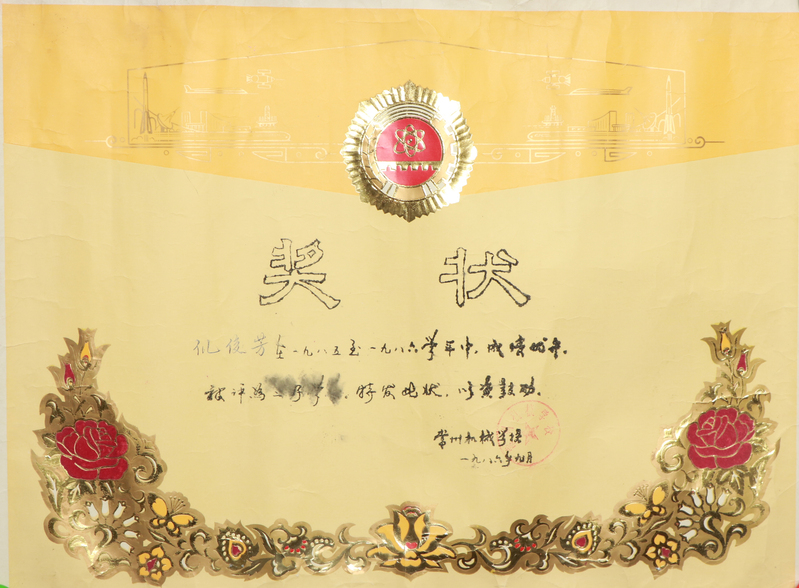 奖状
俊芳在一九八五至一九八六学年中,成绩优异,
被评为三好学生,特发此状,以资鼓励。
常州机械学校
一九八六年九月